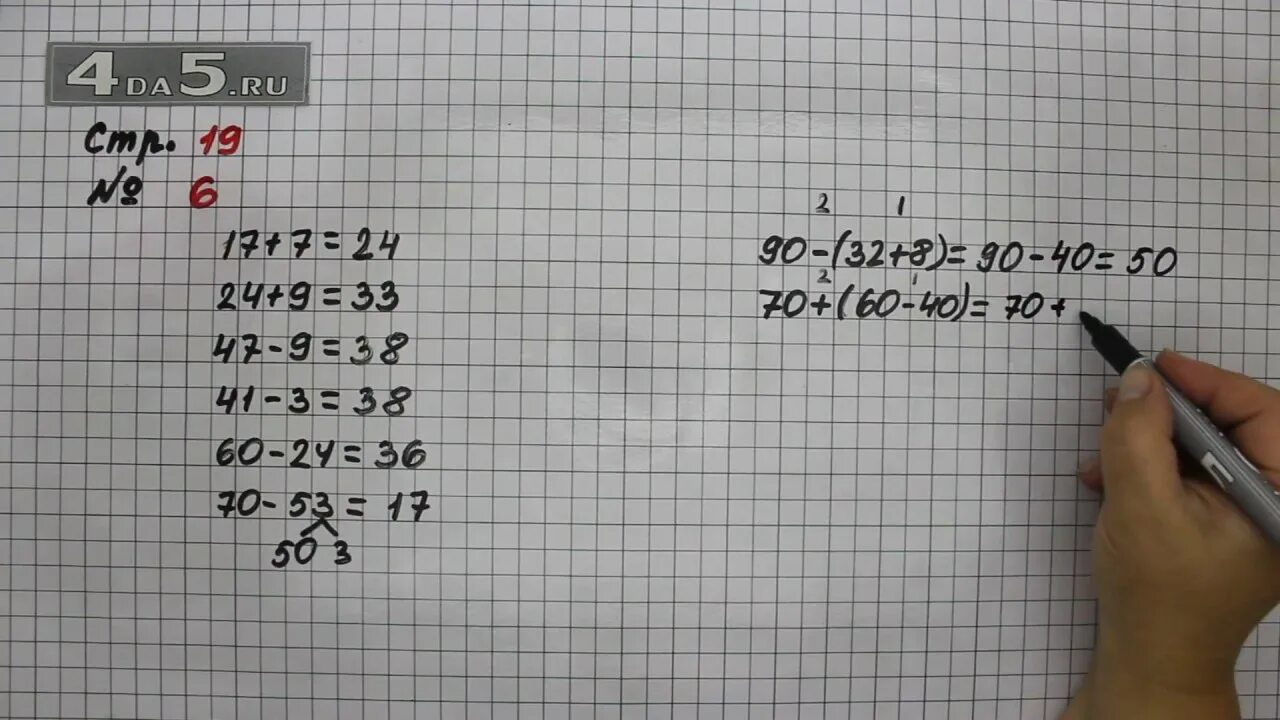 4DA5.RU
Стр. 19
№ 6
17+7=24
24+9=33
47-9=38
41-3=38
60-24=36
70-53=17
50 3
2 1
90-(32+8)=90-40=50
2 1
70+(60-40)=70+